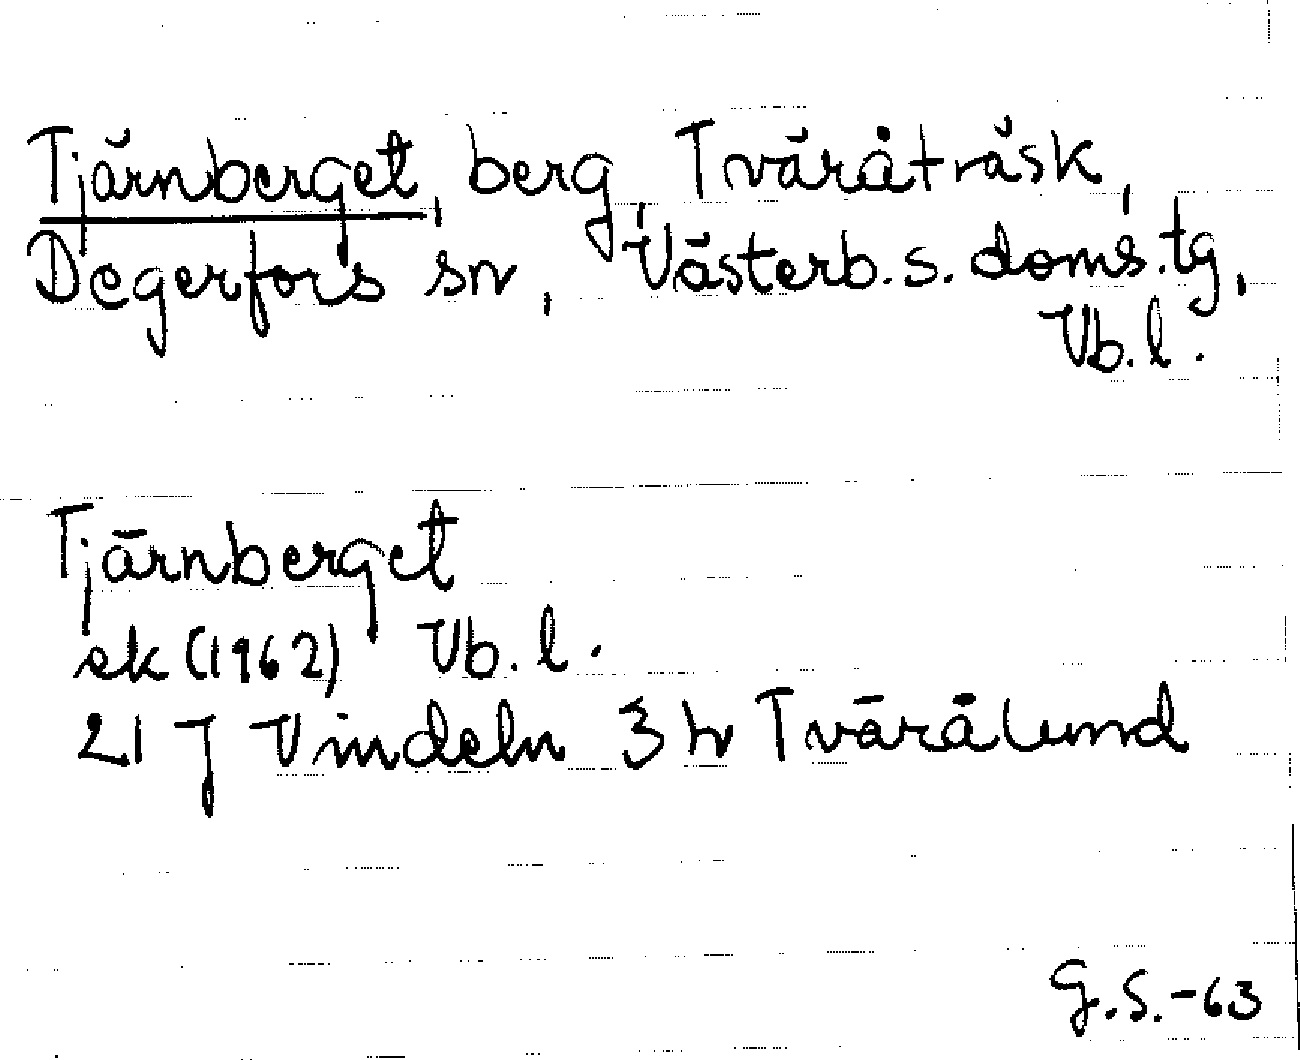 Tjärnberget, berg, Tväråträsk,
Degerfors sn, Västerb. s. doms. tg,
Vb. l.
Tjärnberget
ek (1962) Vb. l.
21 J Vindeln 3 h Tvärålund
G.S.-63